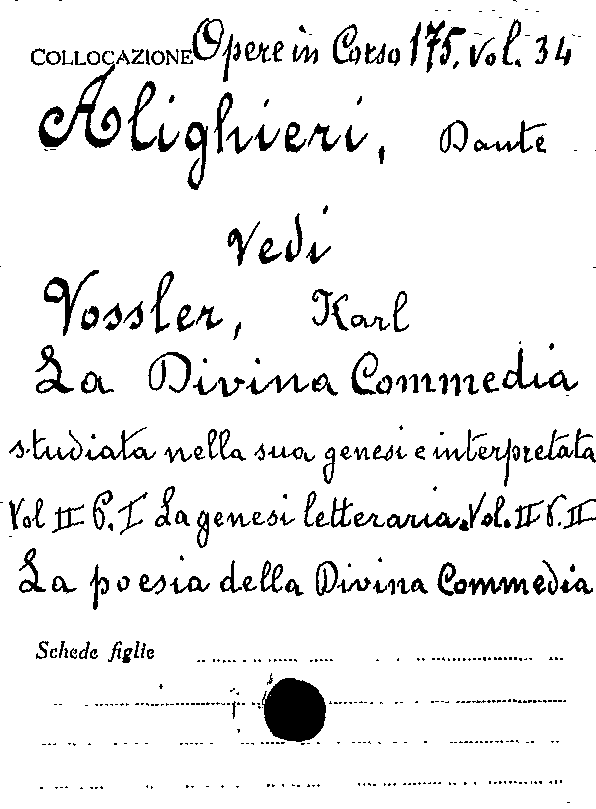 COLLOCAZIONE Opere in Corso 175. Vol. 34
Alighieri, Dante
Vedi
Vossler, Karl
La Divina Commedia
studiata nella sua genesi e interpretata
Vol II P. I La genesi letteraria. Vol. II P. II
La poesia della Divina Commedia
Schede figlie